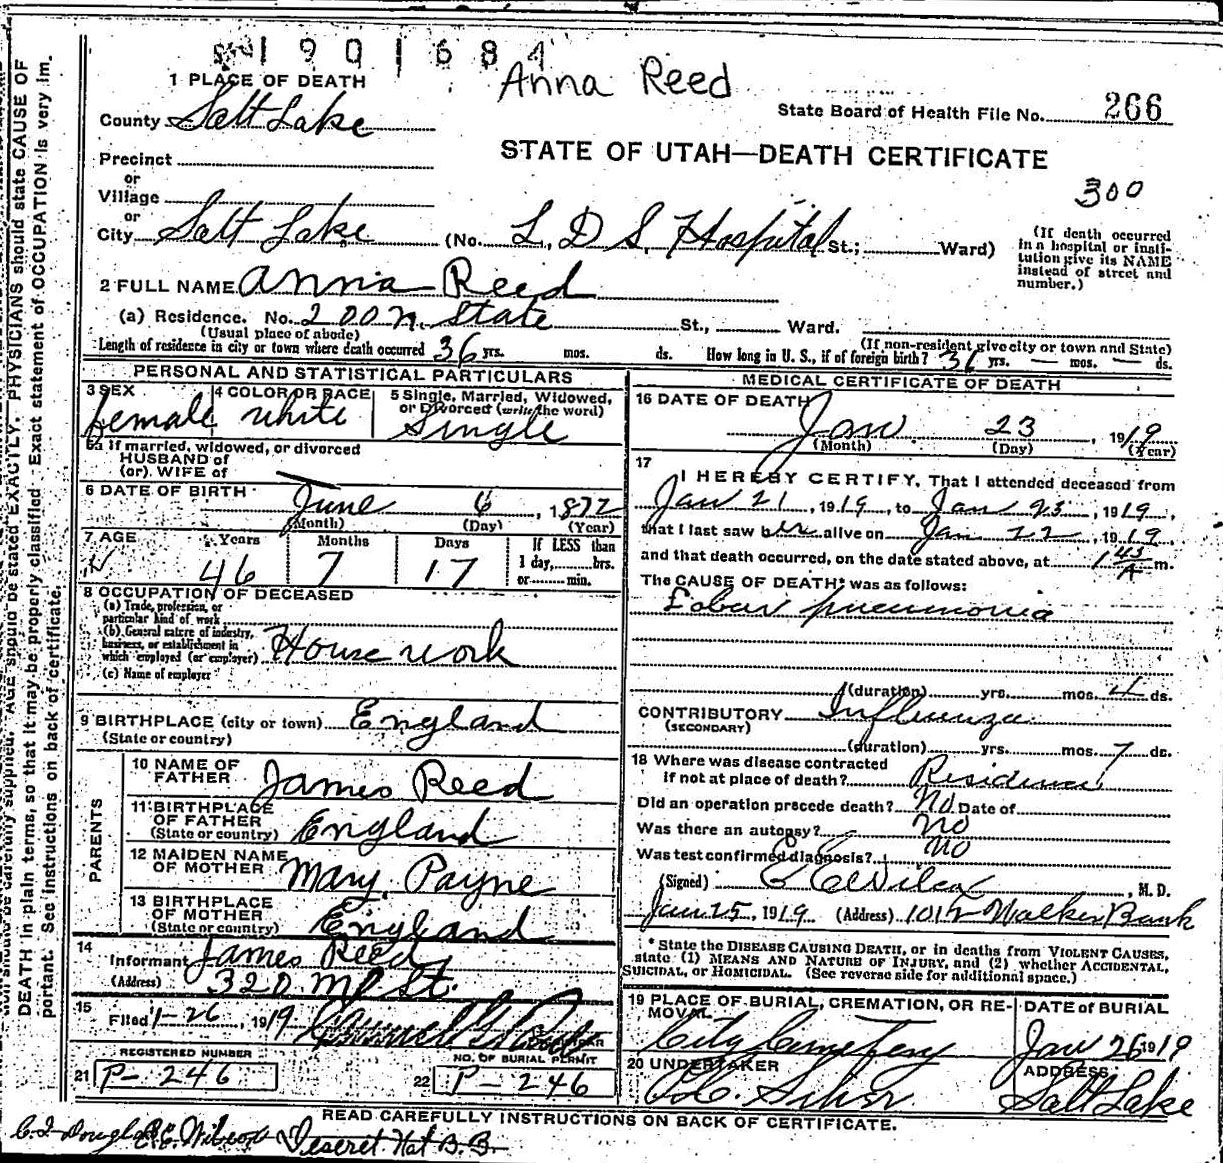 1901684
Anna Reed
1 PLACE OF DEATH
County Salt Lake
State Board of Health File No. 266
Precinct
or
STATE OF UTAH—DEATH CERTIFICATE
Village
or
300
City Salt Lake (No. L. D. S. Hospital St.; Ward)
(If death occurred in a hospital or institution give its NAME instead of street and number.)
2 FULL NAME Anna Reed
(a) Residence. No. 200 N. State St., Ward.
(Usual place of abode) (If non-resident give city or town and State)
Length of residence in city or town where death occurred 36 yrs. mos. ds. How long in U. S., if of foreign birth? 36 yrs. — mos. — ds.
PERSONAL AND STATISTICAL PARTICULARS
3 SEX female
4 COLOR OR RACE white
5 Single, Married, Widowed, or Divorced (write the word) Single
5a If married, widowed, or divorced
HUSBAND of
(or) WIFE of
6 DATE OF BIRTH June 6, 1872
(Month) (Day) (Year)
7 AGE Years Months Days If LESS than
46 7 17 1 day, hrs.
or min.
8 OCCUPATION OF DECEASED
(a) Trade, profession, or particular kind of work
(b) General nature of industry, business, or establishment in which employed (or employer) House work
(c) Name of employer
9 BIRTHPLACE (city or town) England
(State or country)
PARENTS
10 NAME OF FATHER James Reed
11 BIRTHPLACE OF FATHER (State or country) England
12 MAIDEN NAME OF MOTHER Mary Payne
13 BIRTHPLACE OF MOTHER (State or country) England
14 Informant James Reed
(Address) 320 M St.
15 Filed 1-26, 1919
REGISTERED NUMBER
21 P-246
NO. OF BURIAL PERMIT
22 P-246
MEDICAL CERTIFICATE OF DEATH
16 DATE OF DEATH
Jan. 23, 1919
(Month) (Day) (Year)
17
I HEREBY CERTIFY, That I attended deceased from
Jan 21, 1919, to Jan 23, 1919,
that I last saw her alive on Jan 22, 1919
and that death occurred, on the date stated above, at 1 45 A m.
The CAUSE OF DEATH* was as follows:
Lobar pneumonia
(duration) yrs. mos. 4 ds.
CONTRIBUTORY Influenza
(SECONDARY)
(duration) yrs. mos. 7 ds.
18 Where was disease contracted
if not at place of death? Residence
Did an operation precede death? No Date of
Was there an autopsy? No
Was test confirmed diagnosis? No
(Signed) , M. D.
Jan 25, 1919 (Address) 1012 Walker Bank
* State the DISEASE CAUSING DEATH, or in deaths from VIOLENT CAUSES,
state (1) MEANS AND NATURE OF INJURY, and (2) whether ACCIDENTAL,
SUICIDAL, or HOMICIDAL. (See reverse side for additional space.)
19 PLACE OF BURIAL, CREMATION, OR REMOVAL City Cemetery
DATE of BURIAL Jan 26 1919
20 UNDERTAKER
ADDRESS Salt Lake
READ CAREFULLY INSTRUCTIONS ON BACK OF CERTIFICATE.
Deseret Nat B. B.
should be carefully supplied. AGE should be stated EXACTLY. PHYSICIANS should state CAUSE OF
DEATH in plain terms, so that it may be properly classified. Exact statement of OCCUPATION is very im-
portant. See instructions on back of certificate.